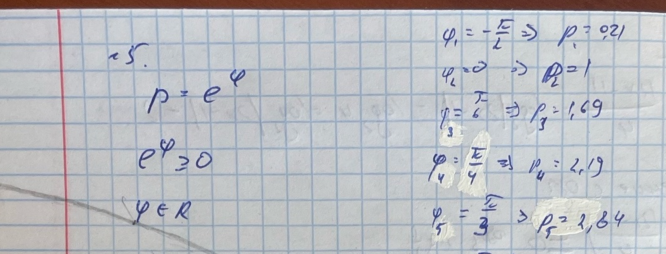 №5.
ρ = e^φ
e^φ ≥ 0
φ ∈ R
φ₁ = -π/2 ⇒ ρ₁ = 0,21
φ₂ = 0 ⇒ ρ₂ = 1
φ₃ = π/6 ⇒ ρ₃ = 1,69
φ₄ = π/4 ⇒ ρ₄ = 2,19
φ₅ = π/3 ⇒ ρ₅ = 2,84